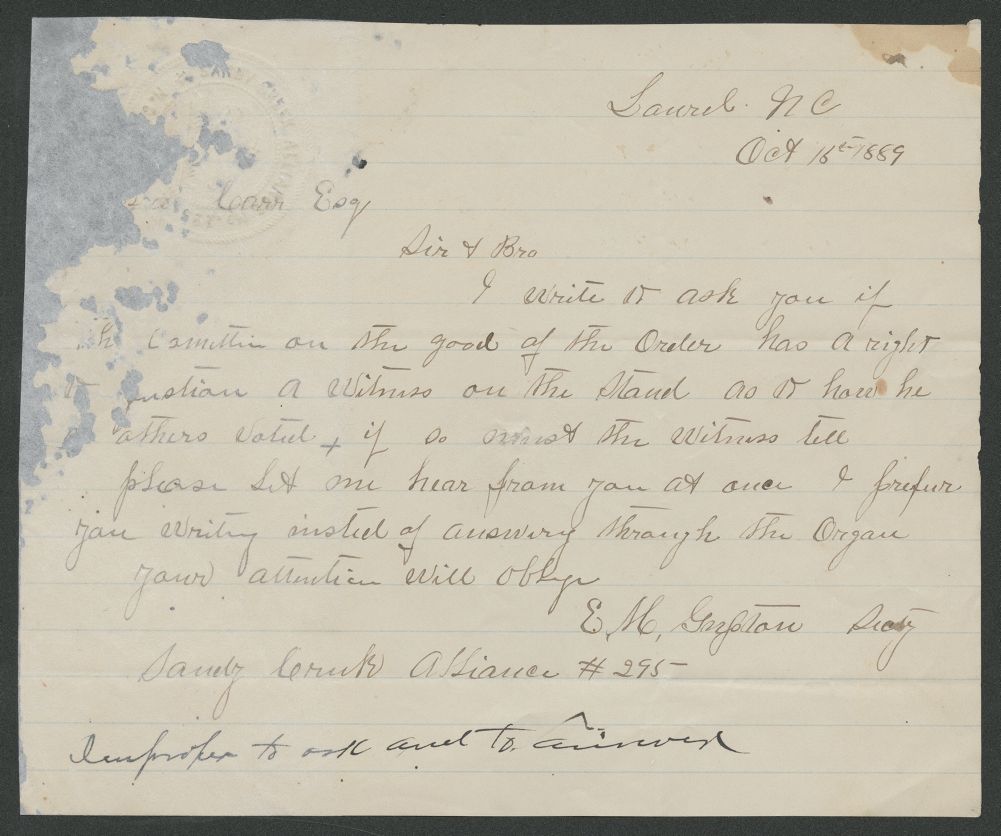 Laurel. N C
Oct 16th 1889
Carr Esq
Sir & Bro
I write to ask you if
Comittie on the good of the Order has a right
to question a Witness on the Stand as to how he
others voted + if so must the Witness tell
please let me hear from you at once I prefur
you writing insted of answerig through the Organ
your attention will oblige
E. M. Gupton Secty
Sandy Creek Alliance # 295
Improper to ask and to answer